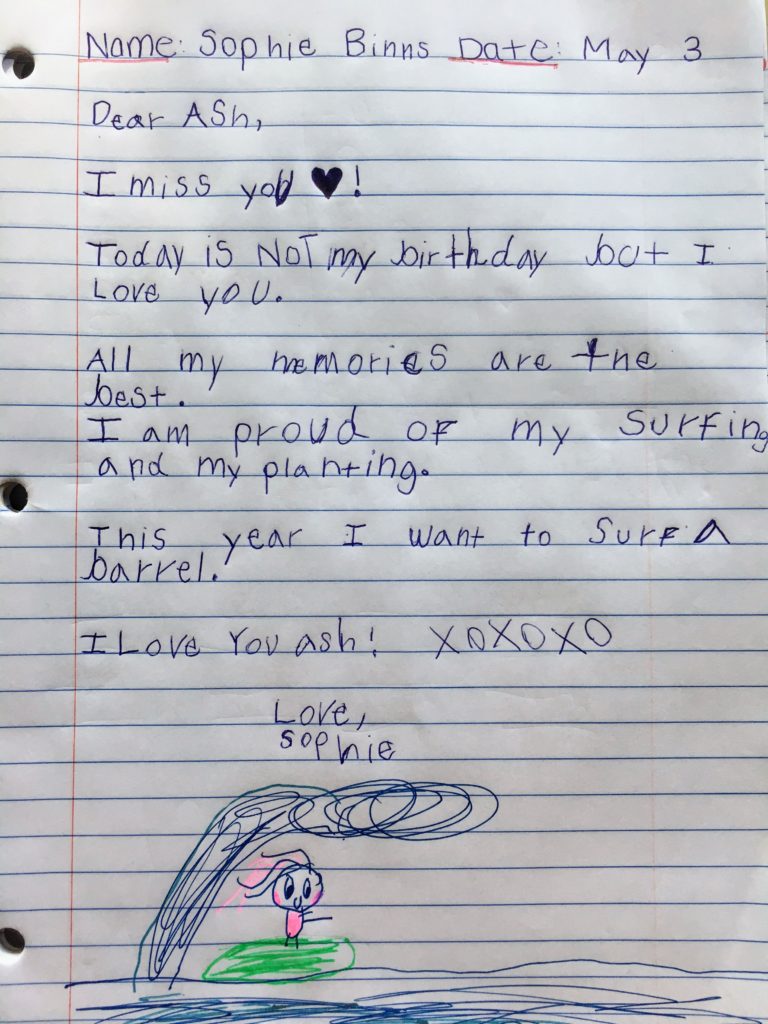 Name: Sophie Binns Date: May 3
Dear ASh,
I miss you ♥!
Today is NOT my birthday but I
Love you.
All my memories are the
best.
I am proud of my Surfing
and my planting.
This year I want to Surf A
barrel.
I Love You ash! XOXOXO
Love,
Sophie